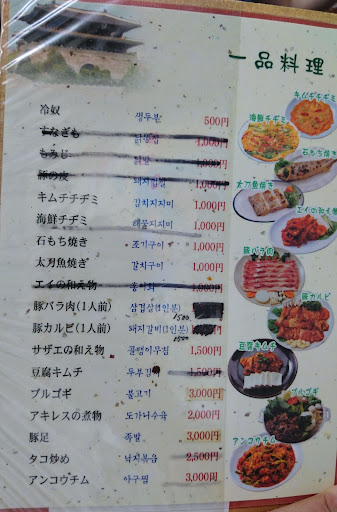 一品料理
冷奴 생두부 500円
すなぎも 닭똥집 1,000円
もみじ 닭발 1,000円
豚の皮 돼지껍질 1,000円
キムチチヂミ 김치지지미 1,000円
海鮮チヂミ 해물지지미 1,000円
石もち焼き 조기구이 1,000円
太刀魚焼き 갈치구이 1,000円
エイの和え物 홍어회
豚バラ肉(1人前) 삼겹살(1인분) 1500
豚カルビ(1人前) 돼지갈비(1인분) 1500
サザエの和え物 골뱅이무침 1,500円
豆腐キムチ 두부김 1,500円
プルゴギ 불고기 3,000円
アキレスの煮物 도가니수육 2,000円
豚足 족발 3,000円
タコ炒め 낙지볶음 2,500円
アンコウチム 아구찜 3,000円
キムチチヂミ
海鮮チヂミ
石もち焼き
太刀魚焼き
エイの和え物
豚バラ肉
豚カルビ
豆腐キムチ
プルゴギ
アンコウチム